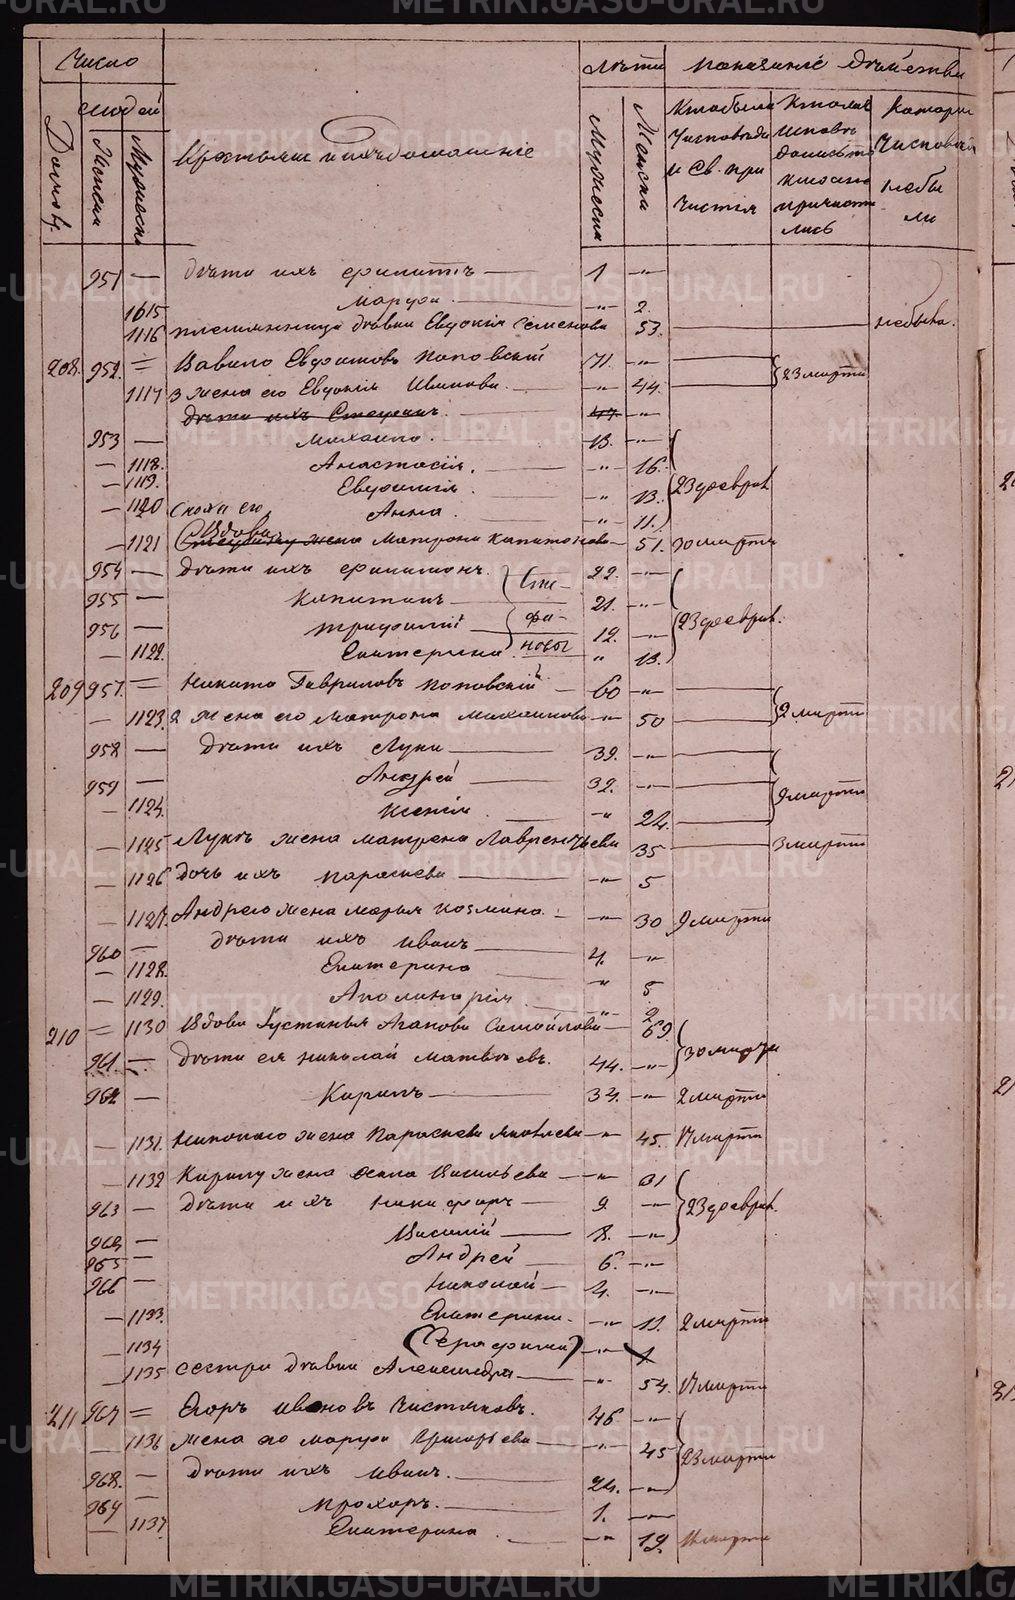 Число
людей
Домовъ
Женска
Мужеска
Крестьяне и ихъ домашніе
Лѣта
Мужеска
Женска
Показаніе дѣйства
Кто были
Исповѣди
и Св. при
частія
Кто ли
исповѣ
дались
причасти
лись
Которы
Исповѣди
небы
ли
951 — дѣти ихъ Филиппъ — 1 -"-
1615 Марфа — -"- 2.
1116 племянница дѣвка Евдокія Семенова 53. небыла.
208. 952. = Вавило Поповскій 71. -"- 23 марта
1117 2 жена его Евдокія Иванова. -"- 44.
дѣти ихъ Стефанъ. -"-
953 — Михаило. 13. -"-
— 1118. Анастасія. -"- 16.
— 1119. Евфимія -"- 13. 23 феврал.
— 1120 Анна. -"- 11.
сноха его
Вдова
— 1121 жена Матрона Капитонова 51. 30 марта
954 — дѣти ихъ Филимонъ. Сте- 22. -"-
955 — Капитонъ фа- 21. -"- 23 феврал.
956 — Трифилій новы 12. -"-
— 1122. Екатерина. " 13.
209 957. = Никита Гавриловъ Поповскій — 60 -"-
— 1123. 2 жена его Матрона Михаилова -"- 50 2 марта
958 — дѣти ихъ Лука 39. -"-
959 — Андрей 32. -"- 9 марта
— 1124. Ксенія. -"- 24.
— 1125 Лукѣ жена Матрена Лаврентьева 35 3 марта
— 1126 дочь ихъ Параскева -"- 5
— 1127. Андрею жена Марья Козмина. -"- 30 9 марта
960 — дѣти ихъ Иванъ 4. -"-
— 1128. Екатерина -"- 5.
— 1129. Аполинарія -"- 2.
210 = 1130 Вдова Устинья Агапова Самойлова — 69. 30 марта
961. — дѣти ея Николай Матвѣевъ. 44. -"-
962 — Кирилъ 34. -"- 2 марта
— 1131. Николаю жена Параскева Яковлева -"- 45. 17 марта
— 1132 Кирилу жена Васильева — -"- 31
963 — дѣти ихъ Никифоръ 9 -"- 23 феврал.
964 — Василій 8. -"-
965 Андрей 6. -"-
966 — Николай 4. -"-
— 1133. Екатерина. -"- 11. 2 марта
— 1134 (Серафима) -"- 1
— 1135 сестра дѣвка Александра -"- 54. 17 марта
211 967 = Егоръ Ивановъ Чистяковъ. 46 -"-
— 1136 жена его Марфа Григорьева -"- 45 23 марта
968. — дѣти ихъ Иванъ. 24. -"-
969 — Прохоръ. 1. -"-
— 1137 Екатерина -"- 19. марта
METRIKI.GASO-URAL.RU